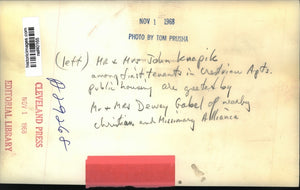 NOV 1 1968
PHOTO BY TOM PRUSHA
(left) Mr & Mrs John Knapik
among first tenants in Crestview Apts.
public housing are greeted by
Mr & Mrs Dewey Gabel of nearby
Christian and Missionary Alliance
CLEVELAND PRESS
NOV 1 1968
EDITORIAL LIBRARY